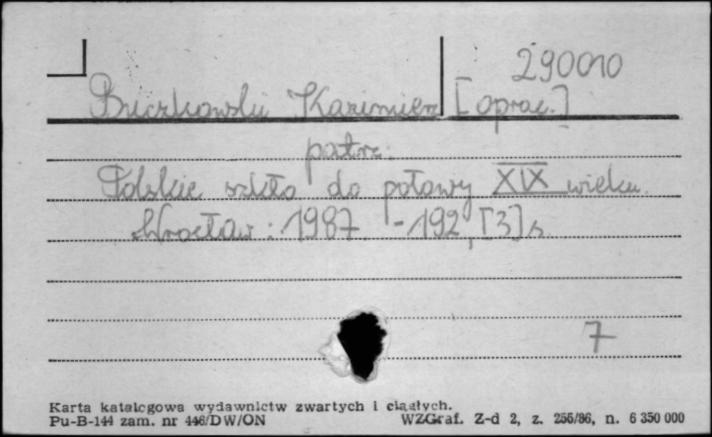 290010
Buczkowski Kazimierz [oprac.]
patrz:
Polskie szkło do połowy XIX wieku.
Wrocław : 1987. - 192, [3] s.
7
Karta katalogowa wydawnictw zwartych i ciągłych.
Pu-B-144 zam. nr 446/DW/ON WZGraf. Z-d 2, z. 256/86, n. 6 350 000